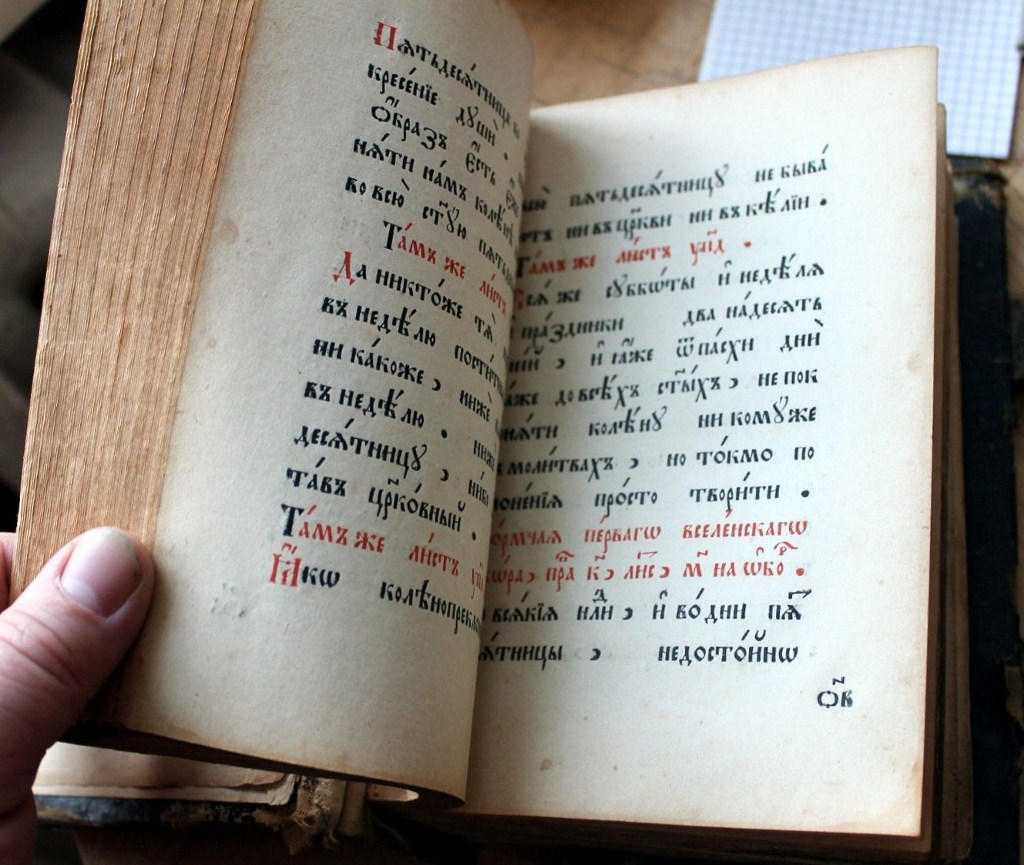 Пѧтьдесѧ́тница
кресе́нїе дꙋшѝ .
ѻ҆́бразъ є҆́сть
нѧ́ти на́мъ
во всю̀ ст҃ꙋ́ю
Та́мъ же ли́стъ
Да никто́же тѧ̀
въ недѣ́лю
ни ка́коже , нижѐ
въ недѣ́лю .
десѧ́тницꙋ ,
та́въ цр҃ко́вный
Та́мъ же ли́стъ
Ꙗ҆́кѡ колѣнопрекло
пѧтьдесѧ́тницꙋ не быва́
етъ ни въ цр҃кви ни въ кѣ́лїи .
Та́мъ же ли́стъ
же сꙋббѡ́ты и҆ недѣ́лѧ
пра́здники два на́десѧть
, и҆ ꙗ҆́же ѿ па́схи дні́й
да́же до всѣ́хъ ст҃ы́хъ , не пок
колѣ́нꙋ ни комꙋ́же
моли́твахъ , но то́кмо по
про́сто твори́ти .
пе́рвагѡ вселе́нскагѡ
на ѡ҆бо .
всѧ́кїѧ , и҆ во́ дни
недосто́йнѡ
ѻ҆в